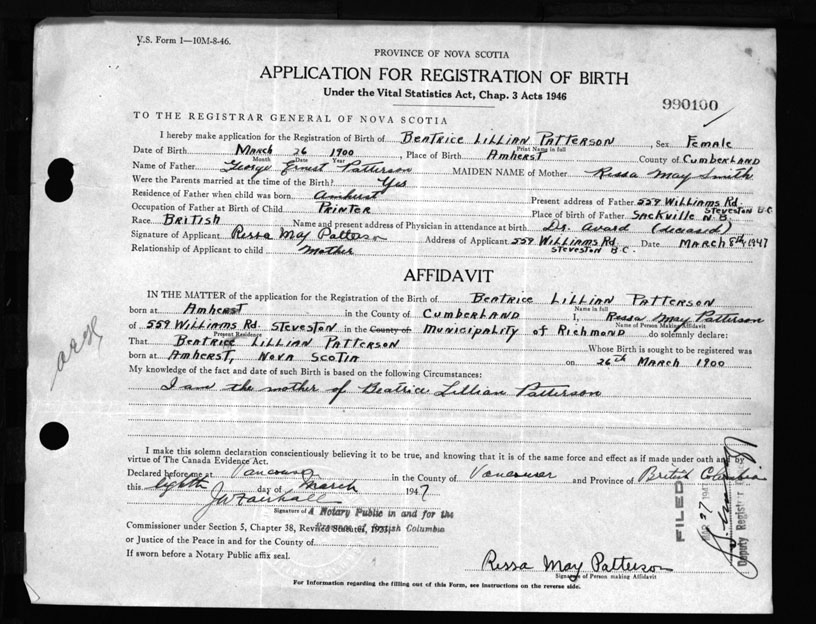 V.S. Form 1—10M-8-46.
PROVINCE OF NOVA SCOTIA
APPLICATION FOR REGISTRATION OF BIRTH
Under the Vital Statistics Act, Chap. 3 Acts 1946
990100
TO THE REGISTRAR GENERAL OF NOVA SCOTIA
I hereby make application for the Registration of Birth of BEATRICE LILLIAN PATTERSON Sex FEMALE
Print Name in full
Date of Birth MARCH 26 1900, Place of Birth AMHERST County of CUMBERLAND
Month Date Year
Name of Father George Ernest Patterson MAIDEN NAME of Mother Ressa May Smith
Were the Parents married at the time of the Birth? Yes
Residence of Father when child was born Amherst Present address of Father 559 WILLIAMS RD. STEVESTON B.C.
Occupation of Father at Birth of Child PRINTER Place of birth of Father SACKVILLE N.B.
Race BRITISH Name and present address of Physician in attendance at birth Dr. Avard (deceased)
Signature of Applicant Ressa May Patterson Address of Applicant 559 WILLIAMS RD. STEVESTON B.C. Date MARCH 8th, 1947
Relationship of Applicant to child Mother
AFFIDAVIT
IN THE MATTER of the application for the Registration of the Birth of BEATRICE LILLIAN PATTERSON
Name in full
born at AMHERST in the County of CUMBERLAND I, Ressa May Patterson
Name of Person Making Affidavit
of 559 WILLIAMS RD. STEVESTON in the County of MUNICIPALITY OF RICHMOND do solemnly declare:
Present Residence
That BEATRICE LILLIAN PATTERSON Whose Birth is sought to be registered was
born at AMHERST, NOVA SCOTIA on 26th MARCH 1900
My knowledge of the fact and date of such Birth is based on the following Circumstances:
I am the mother of Beatrice Lillian Patterson
I make this solemn declaration conscientiously believing it to be true, and knowing that it is of the same force and effect as if made under oath and by
virtue of The Canada Evidence Act.
Declared before me at Vancouver in the County of Vancouver and Province of British Columbia
this Eighth day of March 1947
Signature of A Notary Public in and for the
Commissioner under Section 5, Chapter 38, Revised Statutes, 1923, Province of British Columbia
or Justice of the Peace in and for County of
If sworn before a Notary Public affix seal.
Ressa May Patterson
Signature of Person making Affidavit
For Information regarding the filling out of this Form, see instructions on the reverse side.
FILED
MAR 27 1947
Deputy Registrar